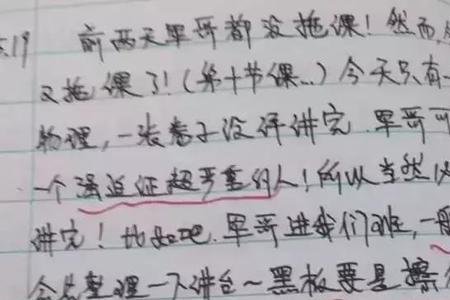 .19 前两天军哥都没拖课！然而,
又拖课了！(第十节课...) 今天只有一
物理,一张卷子没评讲完 军哥可
一个强迫症超严重的人！所以当然
讲完！比如吧.军哥进我们班,一般
会先整理一下讲台~黑板要是擦